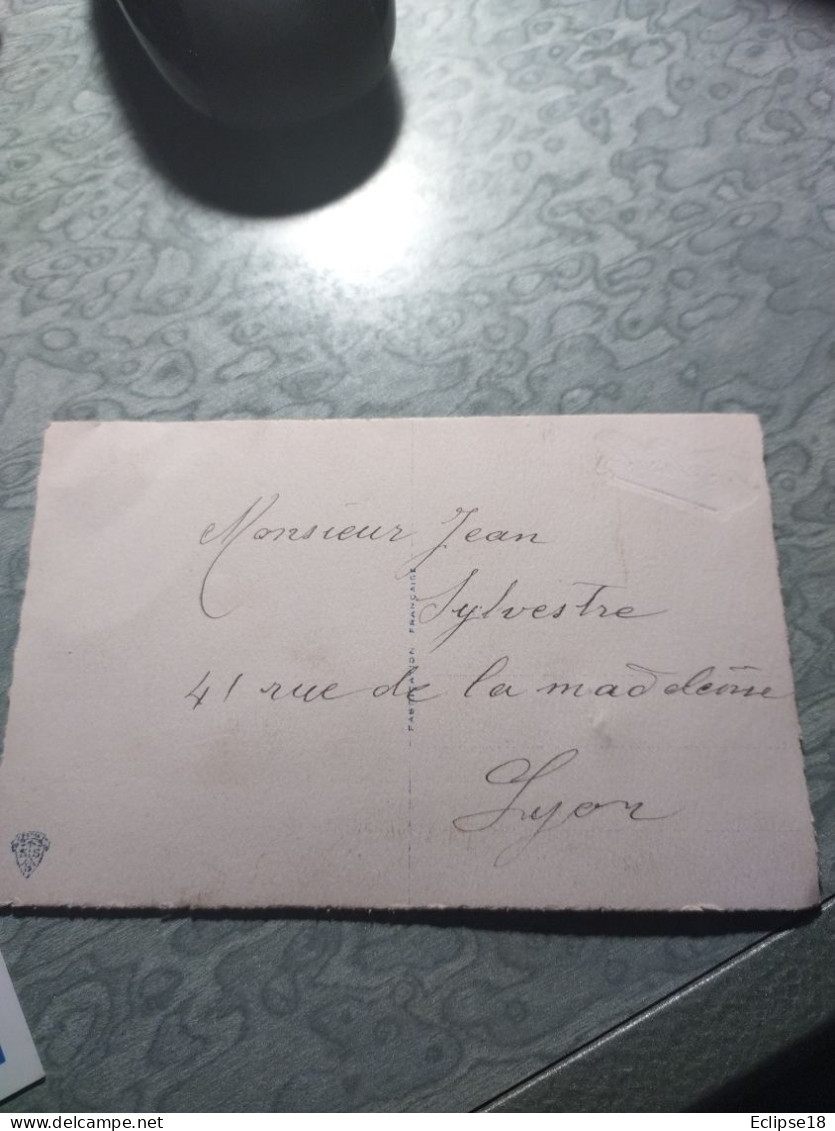 Monsieur Jean
Sylvestre
41 rue de la madeleine
Lyon
FABRICATION FRANÇAISE
delcampe.net
Eclipse18